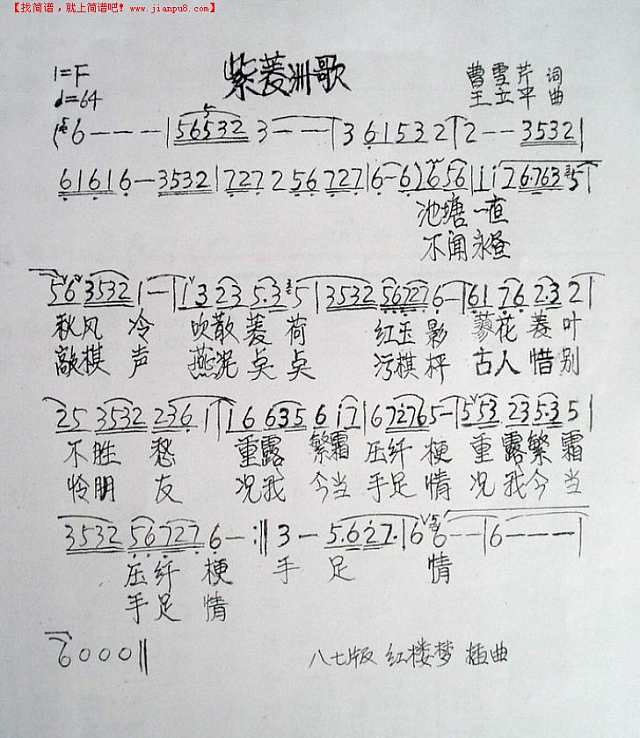 【找简谱，就上简谱吧! www.jianpu8.com】
紫菱洲歌
1=F
♩=64
曹雪芹 词
王立平 曲
6 - - - | 56532 3 - - | 3 61532 | 2 - - 3532 |
61616 - 3532 | 7272 56727 | 6 - 6) 656 | 1 1 26·763 5 |
池塘一夜
不闻永昼
56 3532 1 - | 1 3 23 5·3 5 | 3532 56727 6 - | 61 76 2·3 2 |
秋风 冷 吹散菱荷 红玉影 蓼花菱叶
敲棋 声 燕泥点点 污棋枰 古人惜别
25 3532 236 1 | 1 6 635 6 17 | 672765 - | 553 235·3 5 |
不胜 愁 重露 繁霜 压纤梗 重露繁霜
怜朋 友 况我 今当 手足情 况我今当
3532 56727 6 - :‖ 3 - 5·627· | 6 6 - - | 6 - - - |
压纤 梗 手 足 情
手足 情
6 0 0 0 ‖
八七版 红楼梦 插曲